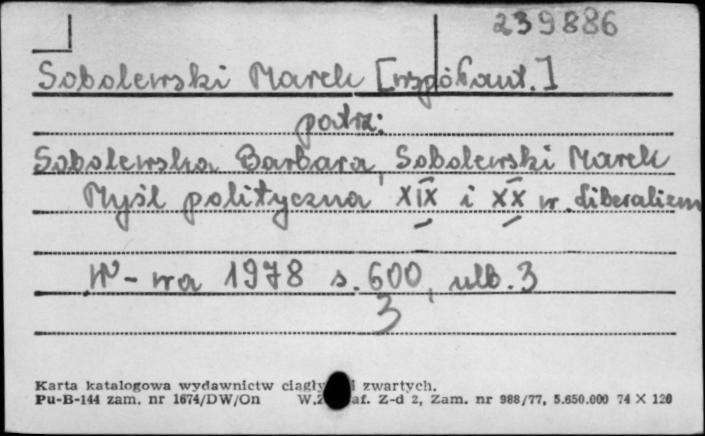 239886
Sobolewski Marek [współaut.]
patrz:
Sobolewska Barbara, Sobolewski Marek
Myśl polityczna XIX i XX w. Liberalizm
W-wa 1978 s. 600, ulb. 3
3
Karta katalogowa wydawnictw ciągły i zwartych.
Pu-B-144 zam. nr 1674/DW/On W.Z af. Z-d 2, Zam. nr 988/77, 5.650.000 74 X 120